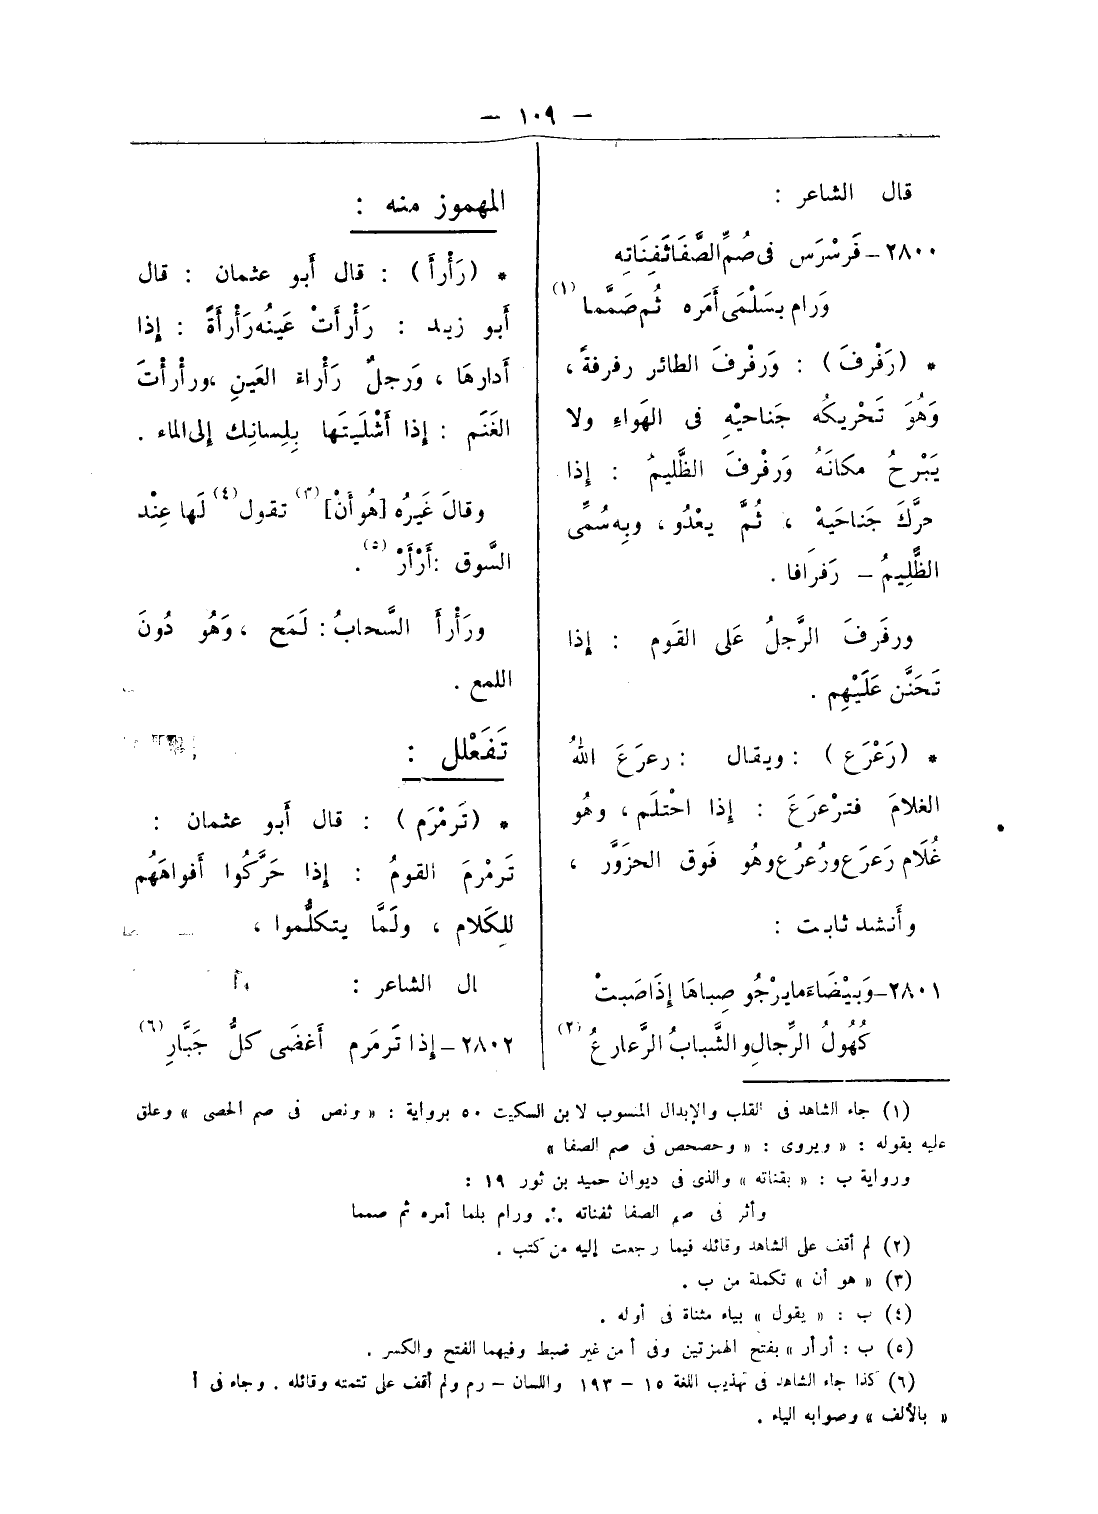 — ١٠٩ —
قال الشاعر :
٢٨٠٠ – فَرَسْرَس فى صُمِّ الصَّفَا ثَفِنَاتِه
وَرام بسَلْمَى أَمَره ثُم صَمَّما (١)
* (رَفْرفَ) : وَرفْرفَ الطائر رفرفةً ،
وَهُوَ تَحْريكُه جَناحيْهِ فى الهَواءِ ولا
يَبْرحُ مكانَهُ وَرفْرفَ الظَّليمُ : إِذا
حرَّكَ جَناحَيهْ ، ثُمَّ يعْدُو ، وبِه سُمِّى
الظَّلِيمُ – رَفرَافا .
ورفَرفَ الرَّجلُ عَلى القَوم : إِذا
تَحَنَّن عَلَيْهِم .
* (رَعْرَع) : ويقال : رعرَعَ اللهُ
الغلامَ فترْعرَعَ : إِذا احْتلَم ، وهُو
غُلَام رَعرَع ورُعرُع وهُو فَوق الحزَوَّر ،
وأَنشد ثابت :
٢٨٠١ – وَبيْضَاءَ ما يرْجُو صِباهَا إِذَا صَبتْ
كُهُولُ الرِّجالِ والشَّبابُ الرَّعارِعُ (٢)
المهموز منه :
* (رَأْرأَ) : قال أَبو عثمان : قال
أَبو زيد : رَأْرأَتْ عَينُه رَأْرأَةً : إِذا
أَدارهَا ، وَرجلٌ رَأْراءَ العَينِ ، ورأْرأتَ
الغَنَم : إِذا أَشْلَيتَها بِلِسانِك إِلى الماء .
وقالَ غَيرُه [هُو أَنْ] (٣) تقول (٤) لَها عِنْد
السَّوق : أَرْأَرْ (٥) .
ورَأْرأَ السَّحابُ : لَمَح ، وَهُو دُونَ
اللمع .
تَفَعْلل :
* (تَرمْرَم) : قال أَبو عثمان :
تَرمْرمَ القومُ : إِذا حَرَّكُوا أَفواهَهُم
لِلكَلام ، ولَمَّا يتكلَّموا ،
ال الشاعر :
٢٨٠٢ – إِذا تَرمَرم أَغضَى كلُّ جَبَّارِ (٦)
(١) جاء الشاهد فى القلب والإبدال المنسوب لابن السكيت ٥٠ برواية : « ونص فى صم الحصى » وعلق
عليه بقوله : « ويروى : « وحصحص فى صم الصفا »
ورواية ب : « بقناته » والذى فى ديوان حميد بن ثور ١٩ :
وأثر فى صم الصفا ثفناته ∴ ورام بلما أمره ثم صمما
(٢) لم أقف على الشاهد وقائله فيما رجعت إليه من كتب .
(٣) « هو أن » تكملة من ب .
(٤) ب : « يقول » بياء مثناة فى أوله .
(٥) ب : أرأر » بفتح الهمزتين وفى أ من غير ضبط وفيهما الفتح والكسر .
(٦) كذا جاء الشاهد فى تهذيب اللغة ١٥ – ١٩٣ واللسان – رم ولم أقف على تتمته وقائله . وجاء فى أ
« بالألف » وصوابه الياء .